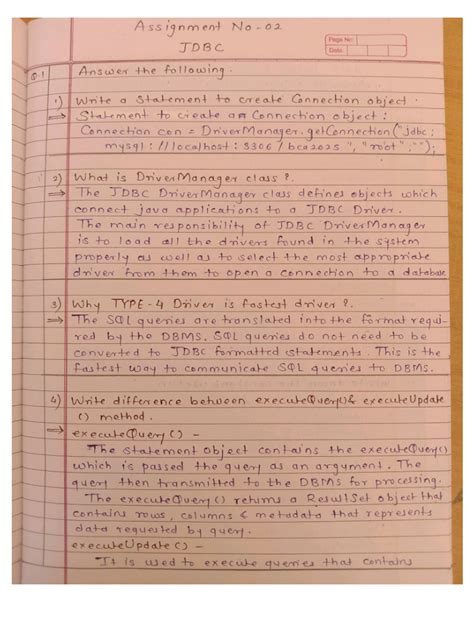 Assignment No-02
JDBC
Page No:
Date:
Q.1 Answer the following.
1) Write a Statement to create Connection object.
⇒ Statement to create an Connection object :
Connection con = DriverManager.getConnection("jdbc:
mysql://localhost:3306/bca2025", "root", "");
2) What is DriverManager class?
⇒ The JDBC DriverManager class defines objects which
connect java applications to a JDBC Driver.
The main responsibility of JDBC DriverManager
is to load all the drivers found in the system
properly as well as to select the most appropriate
driver from them to open a connection to a database
3) Why TYPE-4 Driver is fastest driver?
⇒ The SQL queries are translated into the format requi-
red by the DBMS. SQL queries do not need to be
converted to JDBC formatted statements. This is the
fastest way to communicate SQL queries to DBMS.
4) Write difference between executeQuery()& executeUpdate
() method.
⇒ executeQuery() -
The statement object contains the executeQuery()
which is passed the query as an argument. The
query then transmitted to the DBMS for processing.
The executeQuery() returns a ResultSet object that
contains rows, columns & metadata that represents
data requested by query.
executeUpdate() -
It is used to execute queries that contains